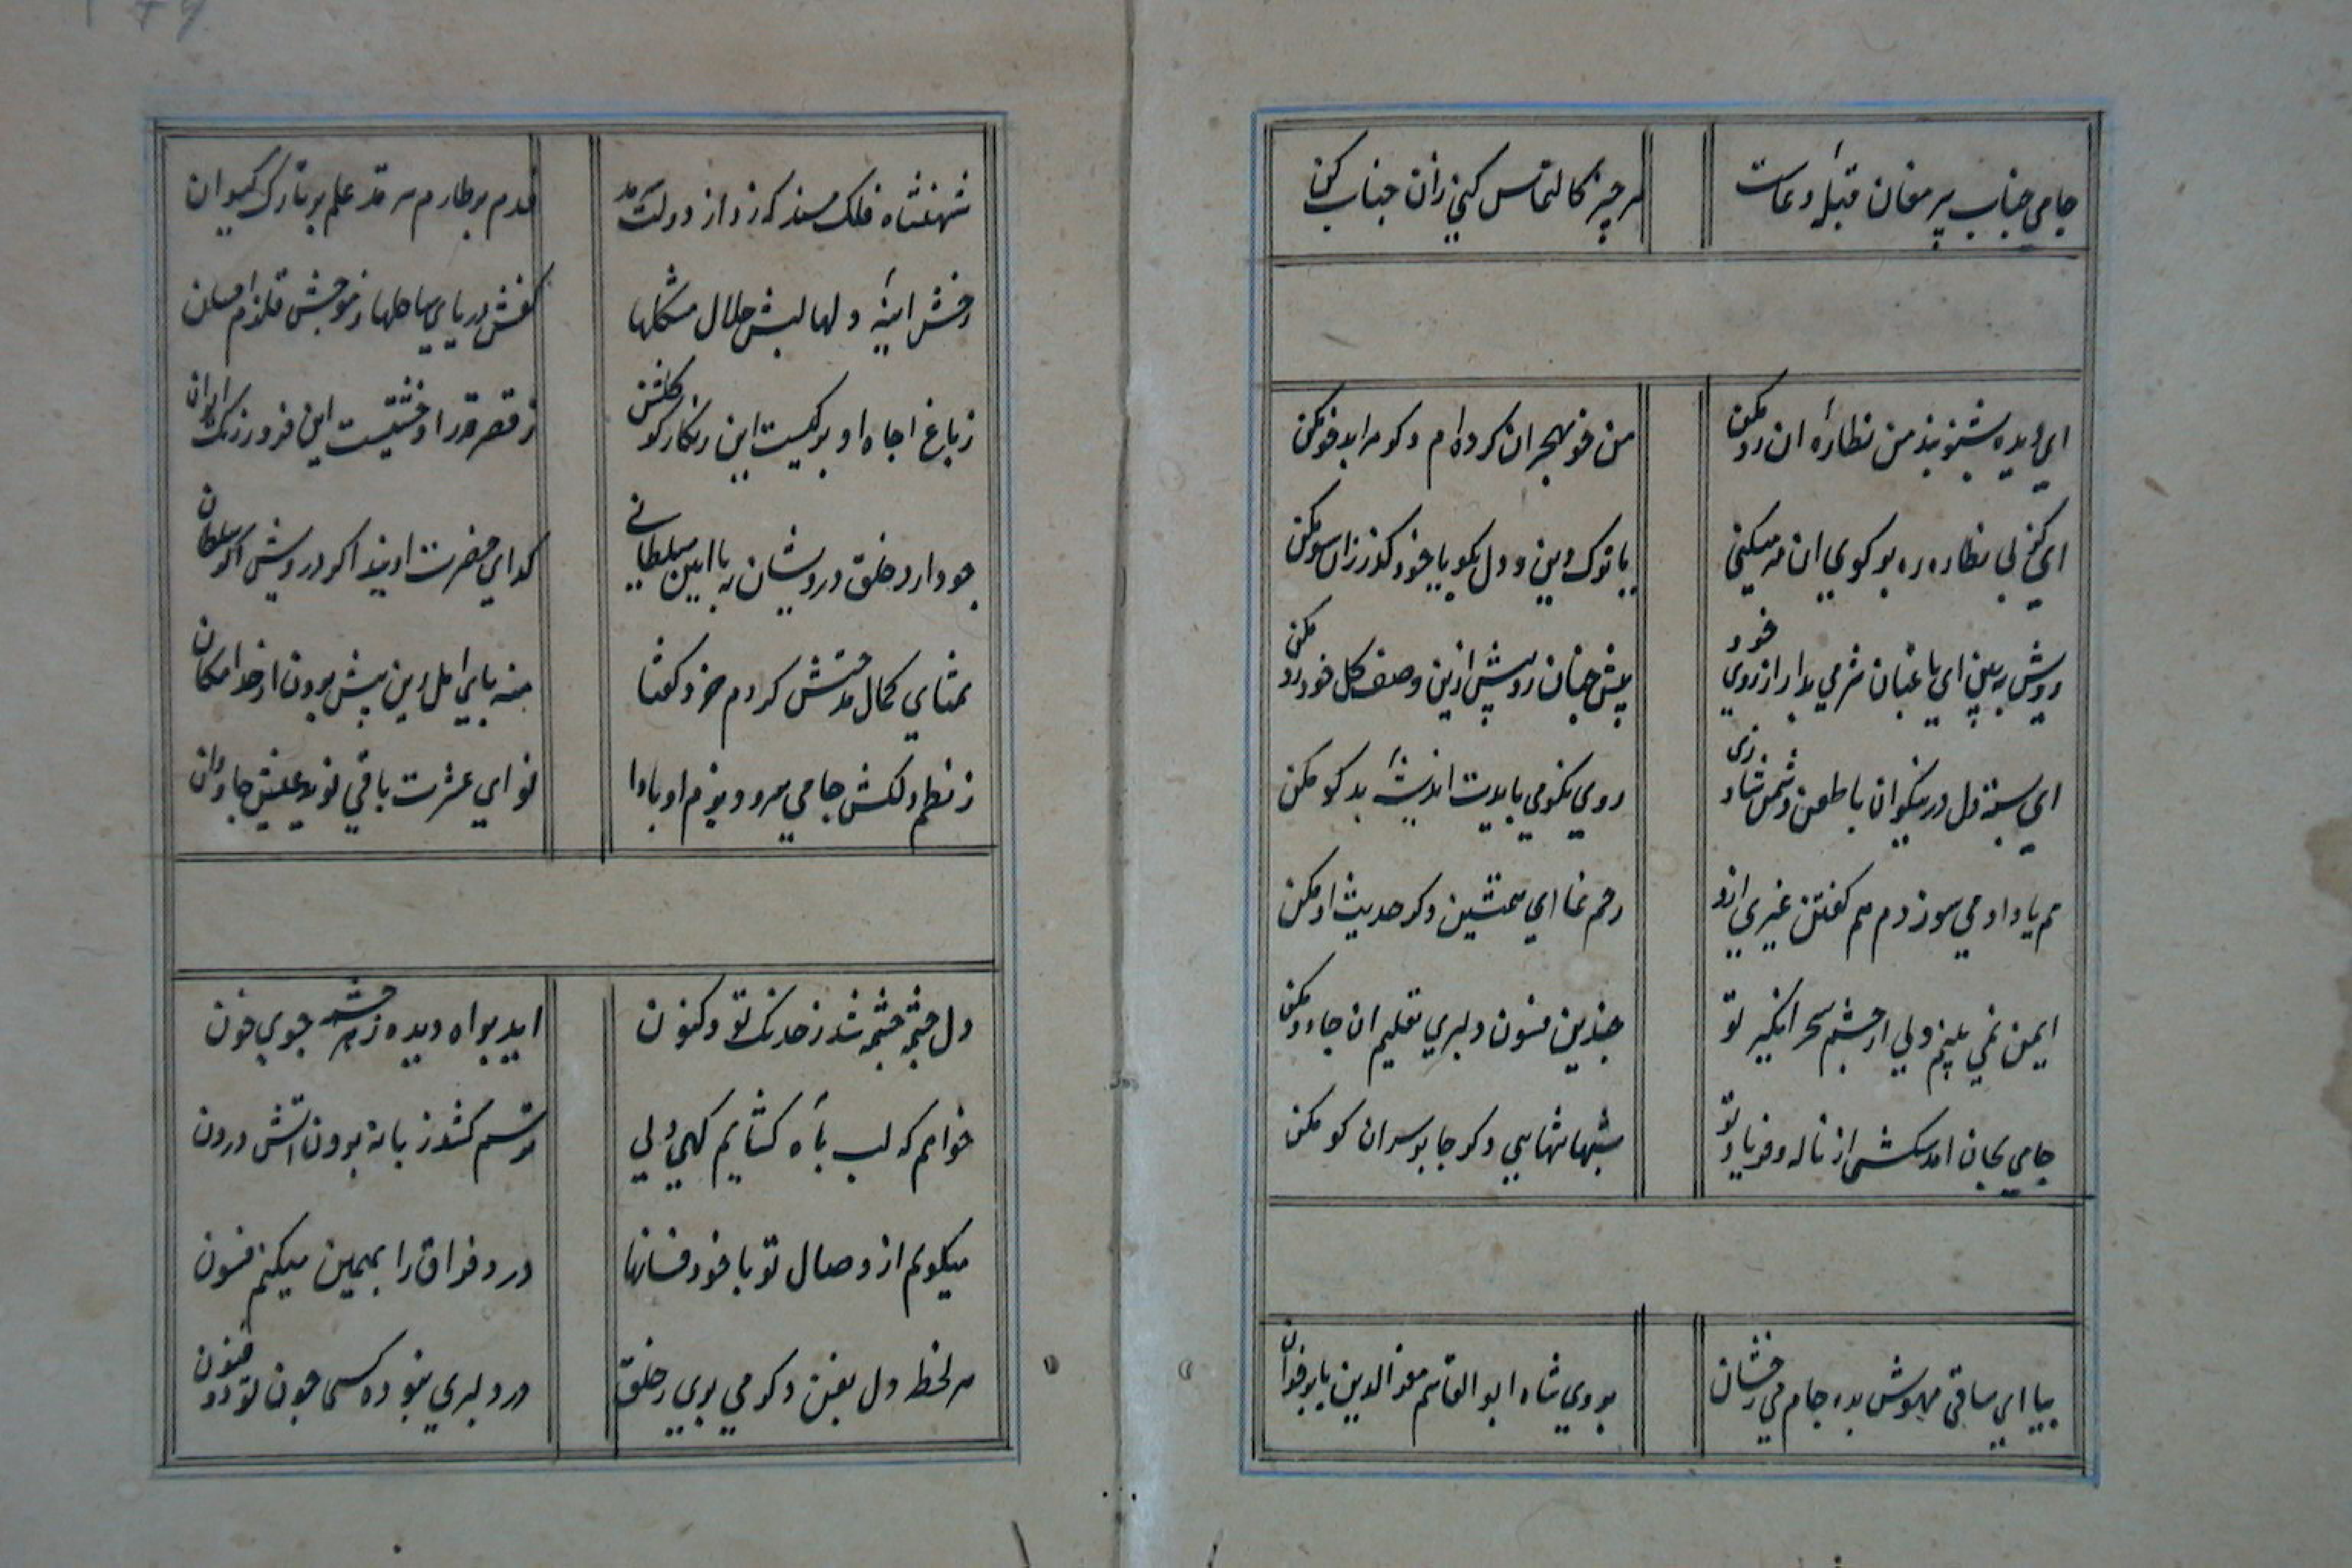 جامی جناب پیر مغان قبلهٔ دعاست هر چیز کالتماس کنی زان جناب کن
ای دیده بشنو پند من نظارهٔ ان رو مکن من خو بهجران کرده ام دکر مرا بدخو مکن
ای کز پی نظاره ره بر کوی ان مه میکنی یا ترک دین و دل بکو یا خود کذر زان سو مکن
رویش ببین ای باغبان شرمی بدار از روی خود پیش چنان رو بیش ازین وصف کل خودرو مکن
ای بسته دل در نیکوان با طعن دشمن شاد زی روی نکو می بایدت اندیشهٔ بدکو مکن
هم یاد او می سوزدم هم کفتن غیری ازو رحم نما ای همنشین دکر حدیث او مکن
ایمن نمی بینم دلی از چشم سحر انکیز تو چندین فسون دلبری تعلیم ان جادو مکن
جامی بجان امد سکش از ناله و فریاد تو شبها تنهایی دکر جا بر سر ان کو مکن
بیا ای ساقی مهوش بده جام می رخشان بروی شاه ابو القاسم معز الدین بابر خان
شهنشاه فلک مسند که زد از دولت سرمد قدم بر طارم فرقد علم بر تارک کیوان
رخش اینهٔ دلها لبش حلال مشکلها کفش دریای بی ساحلها ز موجش قلزم احسان
ز باغ جاه او برکیست این زنکارکون کلشن ز قصر قدر او خشتیست این فیروزه رنک ایوان
چو دارد خلق درویشان به ایین سلطانی کدای حضرت اویند اکر درویش اکر سلطان
ثنای کمال مدحتش کردم خرد کفتا منه پای امل زین بیش بیرون از خط امکان
ز نظم دلکش جامی سرود بزم او بادا نوای عشرت باقی نوید عیش جاویدان
دل چشمه چشمه شد ز خدنک تو و کنون اید براه دیده ز هر چشمه جوی خون
خواهم که لب باه کشایم کهی ولی ترسم کشد زبانه برون اتش درون
میکویم از وصال تو با خود فسانها درد فراق را بهمین میکنم فسون
هر لحظه دل بفن دکر می بری ز خلق در دلبری نبوده کسی چون تو ذو فنون